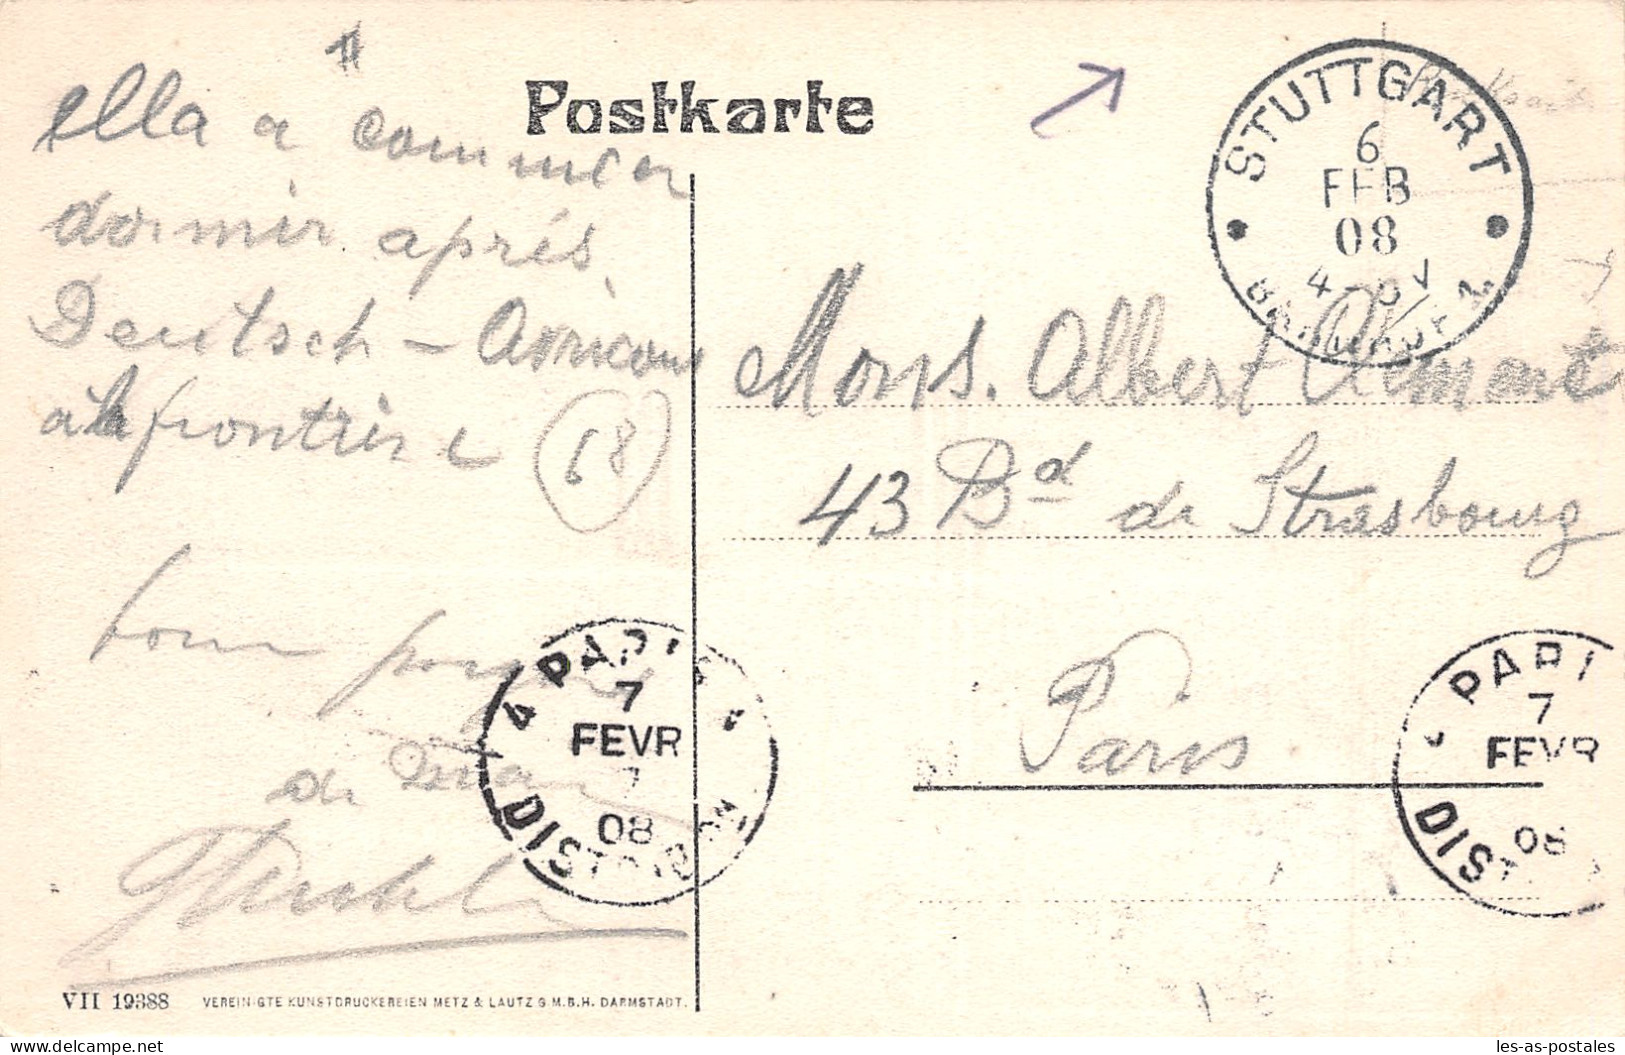 ella a commencer
dormir après
Deutsch-Avricourt
à la frontière
68
de
Postkarte
STUTTGART
6
FEB
08
4-5V
BAHNHOF 2
Mons. Albert Clement
43 Bd de Strasbourg
Paris
PARIS
7
FEVR
08
DISTRIBUTION
PARI
7
FEVR
08
DIST
VII 19388
VEREINIGTE KUNSTDRUCKEREIEN METZ & LAUTZ G.M.B.H. DARMSTADT.
delcampe.net
les-as-postales